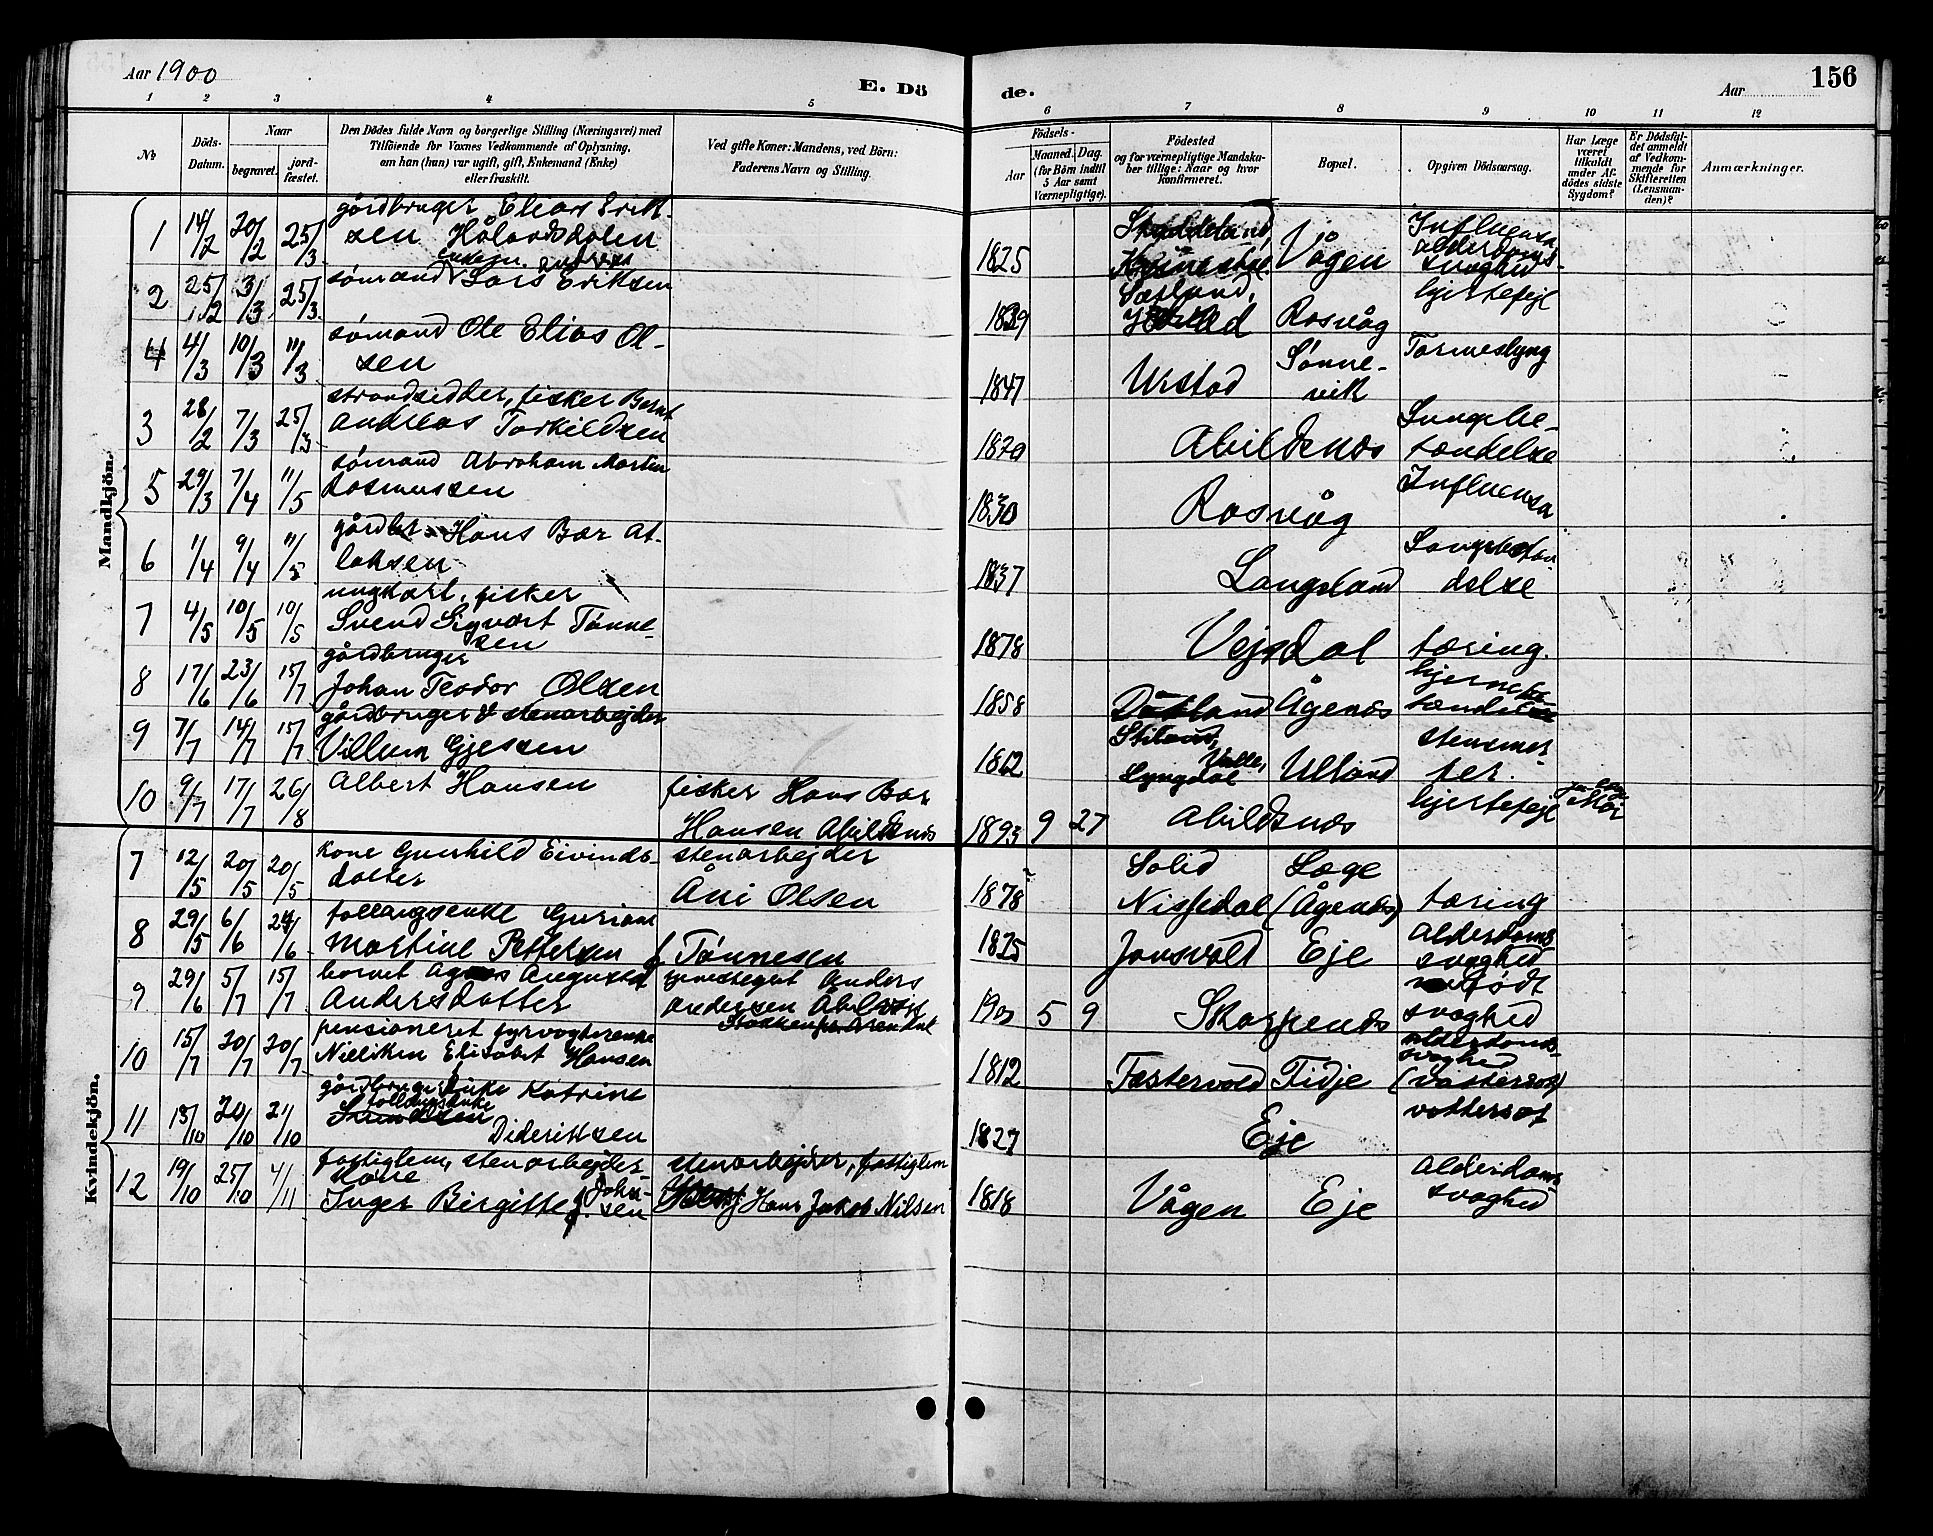 Aar 1900
E. Dö
de.
Aar
156
1 2 3 4 5 6 7 8 9 10 11 12
No
Döds-Datum.
Naar
begravet.
jord-fæstet.
Den Dödes fulde Navn og borgerlige Stilling (Næringsvei) med
Tilföiende for Voxnes Vedkommende af Oplysning,
om han (hun) var ugift, gift, Enkemand (Enke)
eller fraskilt.
Ved gifte Koner: Mandens, ved Börn:
Faderens Navn og Stilling.
Födsels-
Aar
Maaned. Dag.
(for Börn indtil
5 Aar samt
Værnepligtige).
Födested
og for værnepligtige Mandska-
ber tillige: Naar og hvor
konfirmeret.
Bopæl.
Opgiven Dödsaarsag.
Har Læge
været
tilkaldt
under Af-
dödes sidste
Sygdom?
Er Dödsfal-
det anmeldt
af Vedkom-
mende for
Skifteretten
(Lensman-
den)?
Anmærkninger.
Mandkjön.
1 14/2 20/2 25/3 gårdbruger Elias Erik-
sen Hålandsdalen
1825 Vågen Influensa
alderdoms-
svaghed
2 25/2 3/3 25/3 sømand Lars Eriksen
1839 Rosvåg hjertefejl
4 4/3 10/3 11/3 sømand Ole Elias Ol-
sen
1847 Urstad Sønne-
vik Tarmeslyng
3 28/2 7/3 25/3 strandsidder, fisker Bernt
Andreas Torkildsen
1820 Abildsnæs Lungebe-
tændelse
5 29/3 7/4 11/5 sømand Abraham Martin
Rasmussen
1830 Rosvåg Influensa
6 1/4 9/4 11/5 gårdbr. Hans Bær At-
laksen
1837 Langeland
delse
7 4/5 10/5 10/5 ungkarl, fisker
Svend Sigvart Tønne-
sen
1878 Vejsdal tæring.
8 17/6 23/6 15/7 gårdbruger
Johan Teodor Olsen
1858 Ågenæs hjernebe-
tændelse
9 7/7 14/7 15/7 gårdbruger & stenarbejder
Villum Gjessen
1862 Valle,
Lyngdal Ulland stensmer-
ter.
10 9/7 17/7 26/8 Albert Hansen fisker Hans Bær
Hansen Abildsnæs
1893 9 27 Abildsnæs hjertefejl
Kvindekjön.
7 12/5 20/5 20/5 kone Gunhild Eivinds-
datter stenarbejder
Åni Olsen
1878 Solid
Nissedal Læge
(Ågenæs) tæring
8 29/5 6/6 24/6 follaugsenke Guriane
Martine Pettersen f. Tønnesen
1825 Jonsvold Eje Alderdoms
svaghed
9 29/6 5/7 15/7 barnet Agnes Augusta
Andersdatter tjenestegut Anders
Andersen
1900 5 9 Skarpenæs medfødt
svaghed
10 15/7 20/7 20/7 pensioneret fyrvogterenke
Nilliken Elisabet Hansen
1812 Fæstervold Tidje alderdoms-
svaghed
(vattersot)
11 13/10 20/10 21/10 gårdbrugerenke Katrine
Dideriksen
1827 Eje vattersot
12 19/10 25/10 4/11 fattiglem, stenarbejder-
kone
Inger Birgitte f. John-
sen stenarbejder, fattiglem
Hans Jakob Nilsen
1818 Vågen Eje Alderdoms
svaghed